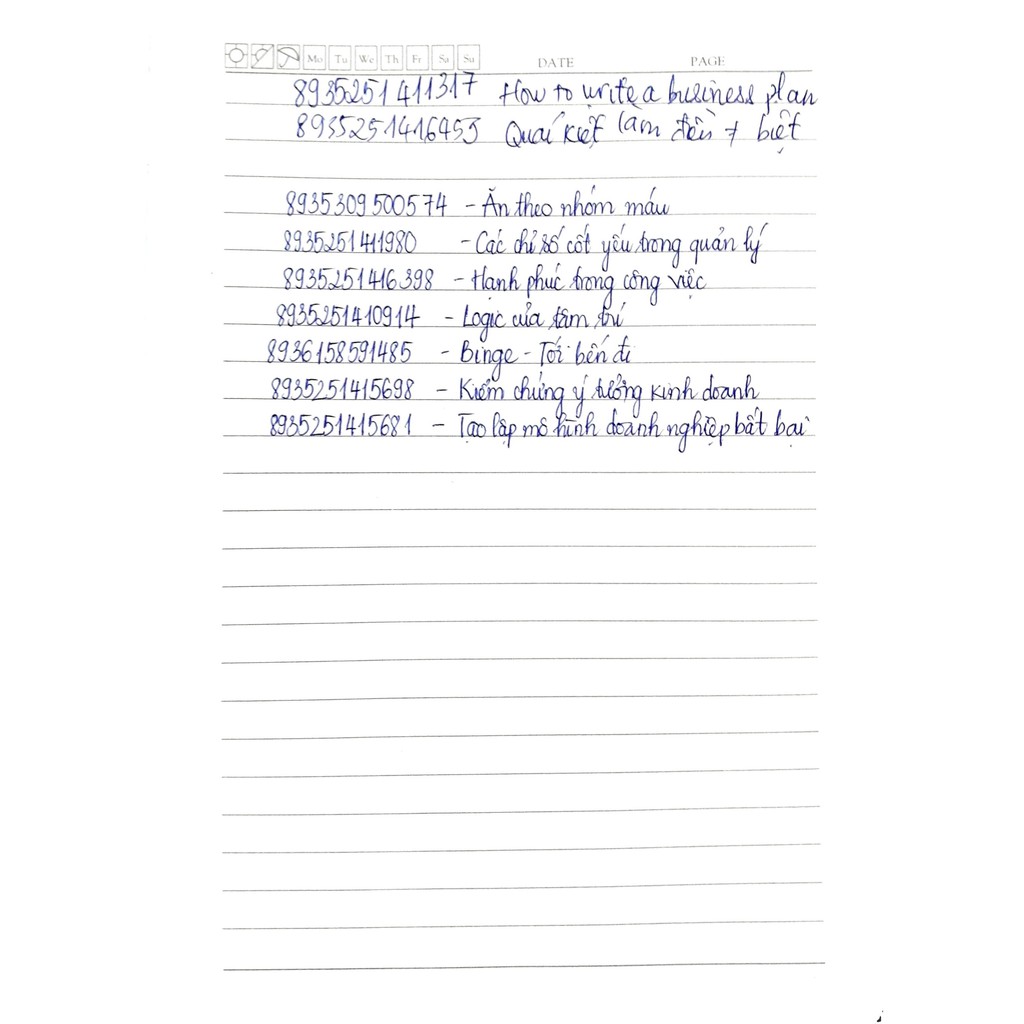 Mo Tu We Th Fr Sa Su DATE PAGE
8935251411317 How to write a business plan
8935251416453 Quái kiệt làm điều ≠ biệt
8935309500574 - Ăn theo nhóm máu
8935251411980 - Các chỉ số cốt yếu trong quản lý
8935251416398 - Hạnh phúc trong công việc
8935251410914 - Logic của tâm trí
8936158591485 - Binge - Tới bến đi
8935251415698 - Kiểm chứng ý tưởng kinh doanh
8935251415681 - Tạo lập mô hình doanh nghiệp bất bại